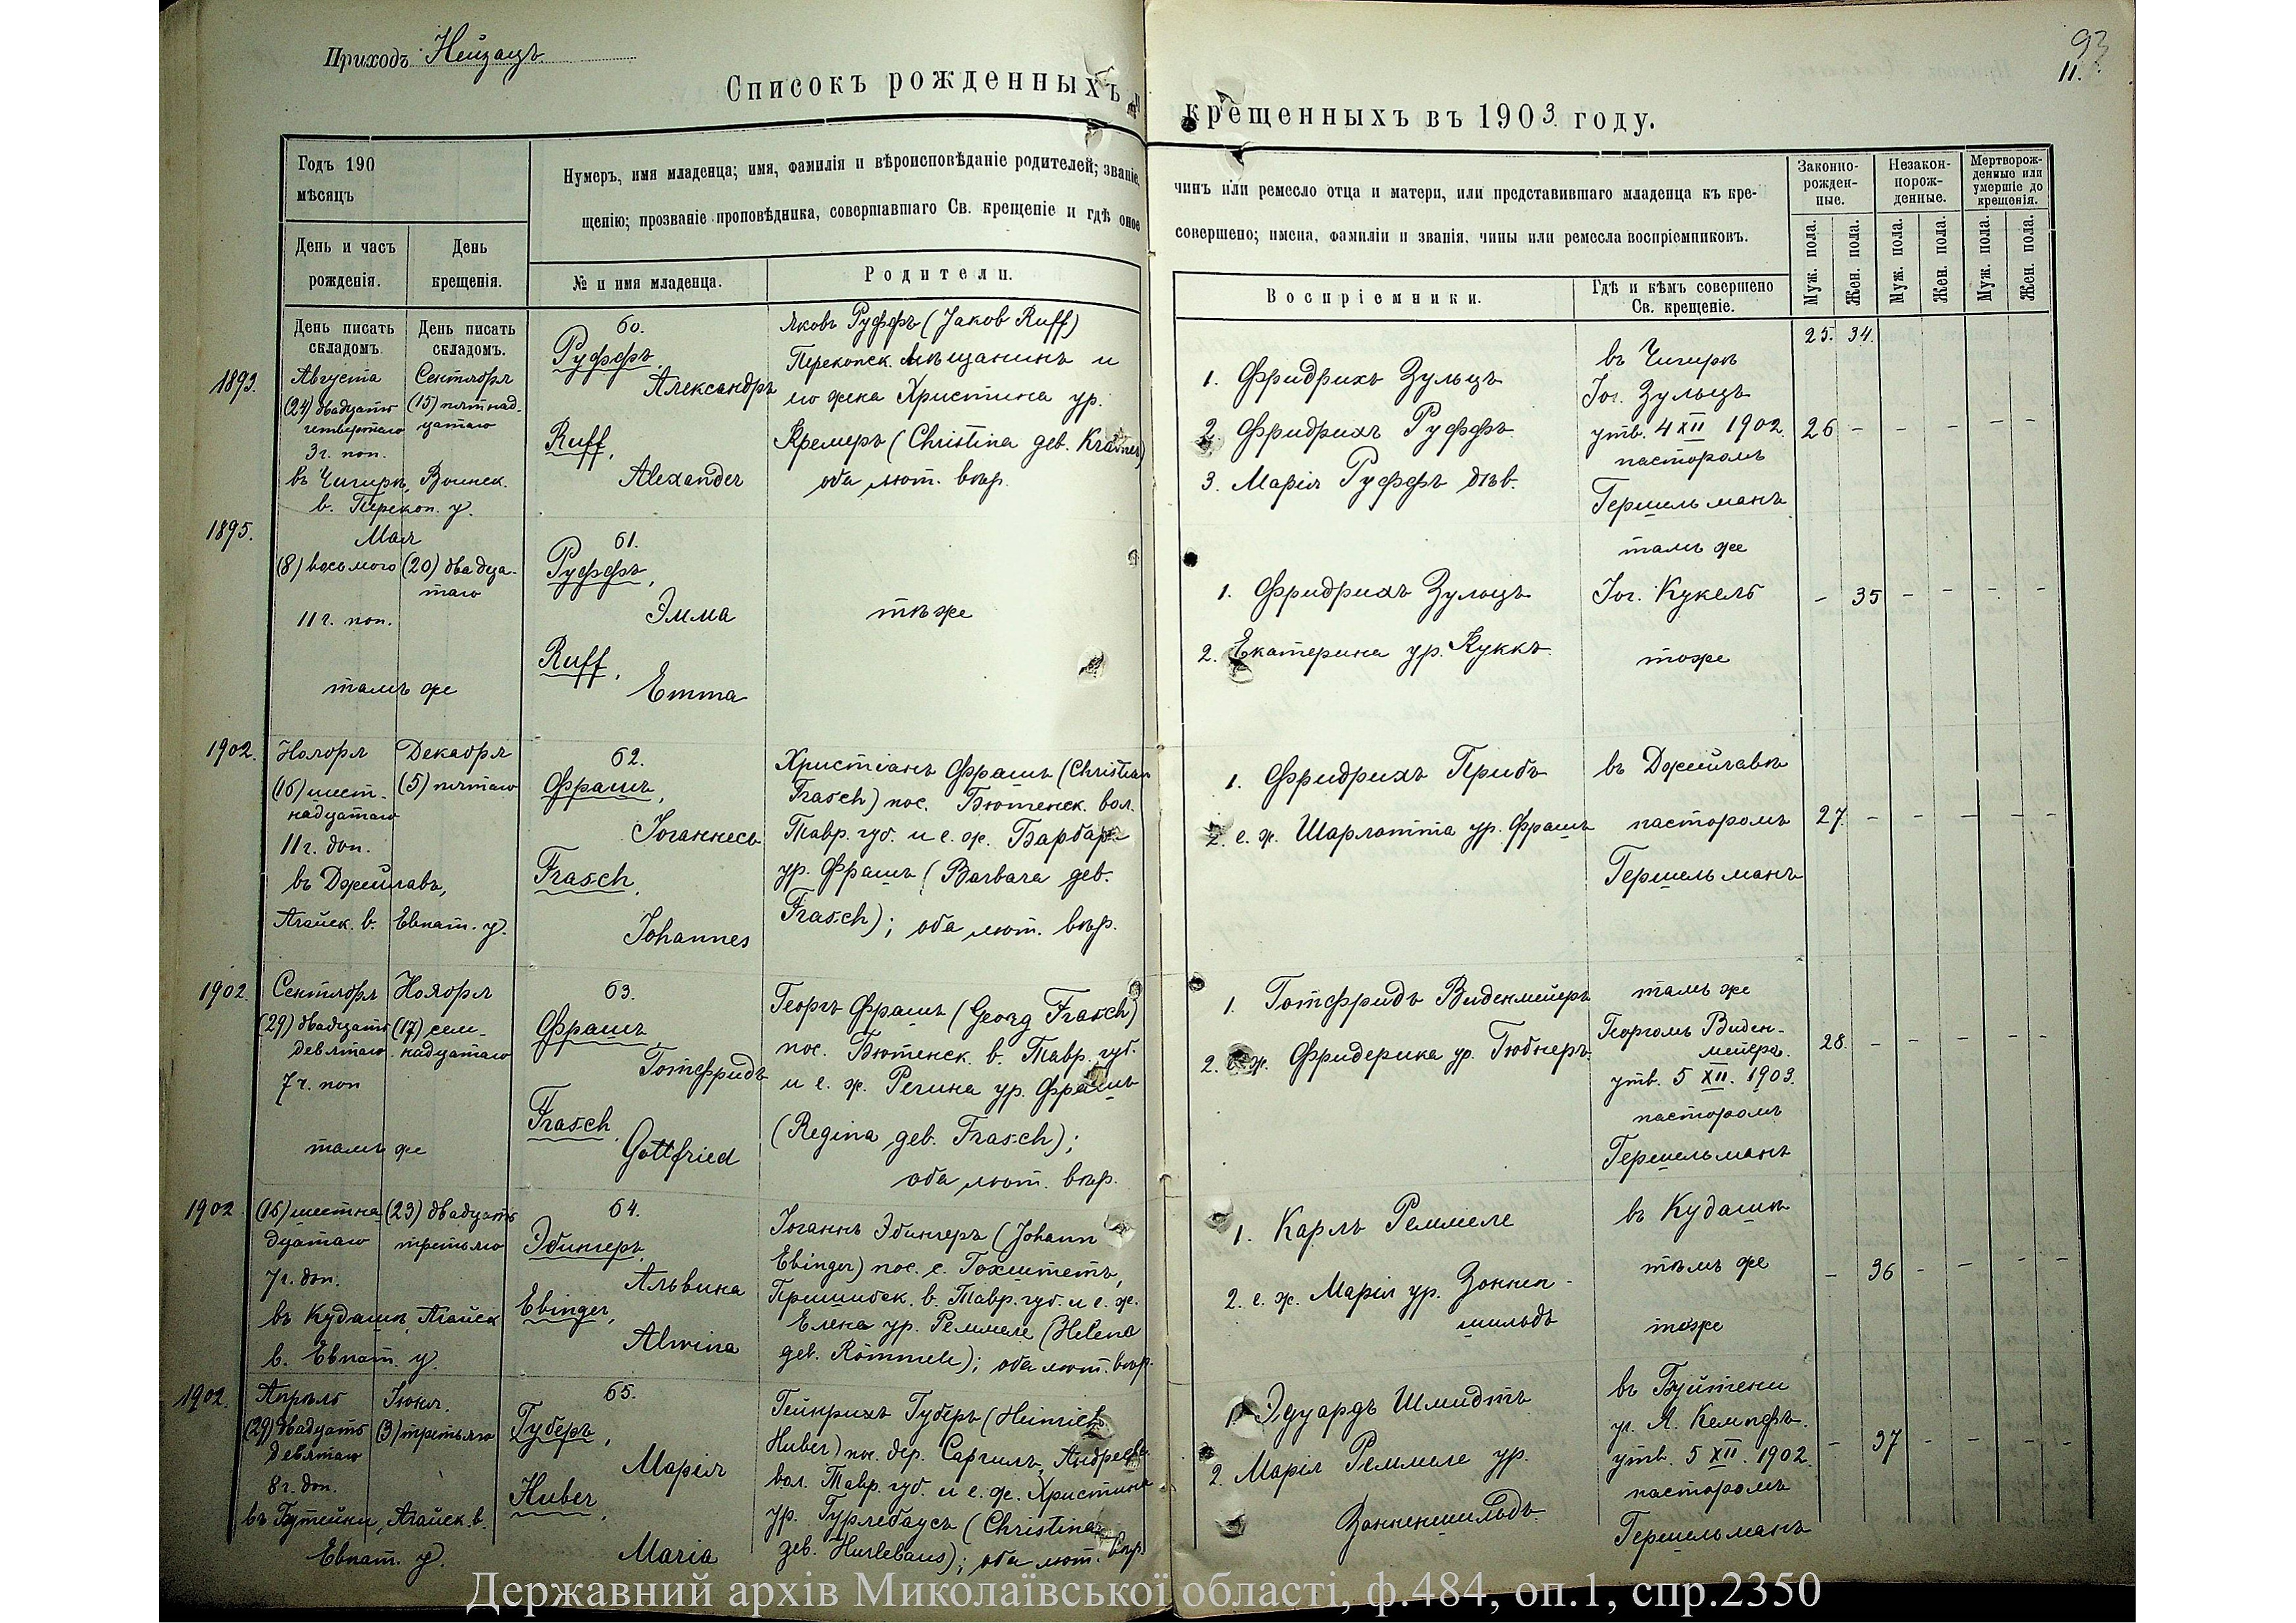 Приходъ Нейзацъ
93
11.
Списокъ рожденныхъ и
крещенныхъ въ 1903 году.
Годъ 190
мѣсяцъ
День и часъ рожденія.
День крещенія.
Нумеръ, имя младенца; имя, фамилія и вѣроисповѣданіе родителей; званіе,
щенію; прозваніе проповѣдника, совершавшаго Св. крещеніе и гдѣ оное
№ и имя младенца.
Родители.
чинъ или ремесло отца и матери, или представившаго младенца къ кре-
совершено; имена, фамиліи и званія, чины или ремесла воспріемниковъ.
Воспріемники.
Гдѣ и кѣмъ совершено
Св. крещеніе.
Законно-
рожден-
ные.
Незакон-
норож-
денные.
Мертворож-
денные или
умершіе до
крещенія.
Муж. пола.
Жен. пола.
Муж. пола.
Жен. пола.
Муж. пола.
Жен. пола.
День писать
складомъ.
День писать
складомъ.
25. 34.
1893.
Августа
(24) двадцать
четвертаго
3 ч. поп.
Сентября
(15) пятнад-
цатаго
въ Чигирѣ, Воинск.
в. Перекоп. у.
60.
Руффъ,
Александръ
Ruff,
Alexander
Яковъ Руффъ (Jakob Ruff)
Перекопск. мѣщанинъ и
его жена Христина ур.
Кремеръ (Christina geb. Krämer)
оба лют. вѣр.
1. Фридрихъ Зульцъ
2. Фридрихъ Руффъ
3. Марія Руффъ дѣв.
въ Чигирѣ
Іог. Зульцъ
утв. 4 XII 1902.
пасторомъ
Гершельманъ
26 - - - - -
1895.
Мая
(8) восьмого
11 ч. поп.
(20) двадца-
таго
тамъ же
61.
Руффъ,
Эмма
Ruff,
Emma
тѣ же
1. Фридрихъ Зульцъ
2. Екатерина ур. Куккъ
тамъ же
Іог. Кукель
тоже
- 35 - - - -
1902.
Ноября
(16) шест-
надцатаго
11 ч. доп.
Декабря
(5) пятаго
въ Джейлавѣ,
Агайск. в. Евпат. у.
62.
Фрашъ,
Іоганнесъ
Frasch,
Johannes
Христіанъ Фрашъ (Christian
Frasch) пос. Бютенск. вол.
Тавр. губ. и е. ж. Барбара
ур. Фрашъ (Barbara geb.
Frasch); оба лют. вѣр.
1. Фридрихъ Грибъ
2. е. ж. Шарлотта ур. Фрашъ
въ Джейлавѣ
пасторомъ
Гершельманъ
27. - - - - -
1902.
Сентября
(29) двадцать
девятаго
7 ч. поп
Ноября
(17) сем-
надцатаго
тамъ же
63.
Фрашъ,
Готфридъ
Frasch,
Gottfried
Георгъ Фрашъ (Georg Frasch)
пос. Бютенск. в. Тавр. губ.
и е. ж. Регина ур. Фрашъ
(Regina geb. Frasch);
оба лют. вѣр.
1. Готфридъ Виденмейеръ
2. е. ж. Фридерика ур. Гюбнеръ
тамъ же
Георгомъ Виден-
мейеръ.
утв. 5 XII. 1903.
пасторомъ
Гершельманъ
28. - - - - -
1902.
(16) шестна-
дцатаго
7 ч. доп.
(23) двадцать
третьяго
въ Кудашѣ, Агайск
в. Евпат. у.
64.
Эбингеръ,
Альвина
Ebinger,
Alwina
Іоганнъ Эбингеръ (Johann
Ebinger) пос. с. Гохштетъ,
Пришибск. в. Тавр. губ. и е. ж.
Елена ур. Реммеле (Helena
geb. Römmele); оба лют. вѣр.
1. Карлъ Реммеле
2. е. ж. Марія ур. Зоннен-
шильдъ
въ Кудашѣ
тѣмъ же
тоже
- 36 - - - -
1902.
Апрѣль
(29) двадцать
девятаго
8 ч. доп.
Іюня.
(3) третьяго
въ Бутейки, Агайск. в.
Евпат. у.
65.
Губеръ,
Марія
Huber,
Maria
Гейнрихъ Губеръ (Heinrich
Huber) пос. дер. Саргилъ, Андреевск.
вол. Тавр. губ. и е. ж. Христина
ур. Гурлебаусъ (Christina
geb. Hurlebaus); оба лют. вѣр.
1. Эдуардъ Шмидтъ
2. Марія Реммеле ур.
Зонненшильдъ
въ Буйтени
уч. А. Кемпфъ.
утв. 5 XII. 1902.
пасторомъ
Гершельманъ
- 37 - - - -
Державний архів Миколаївської області, ф.484, оп.1, спр.2350